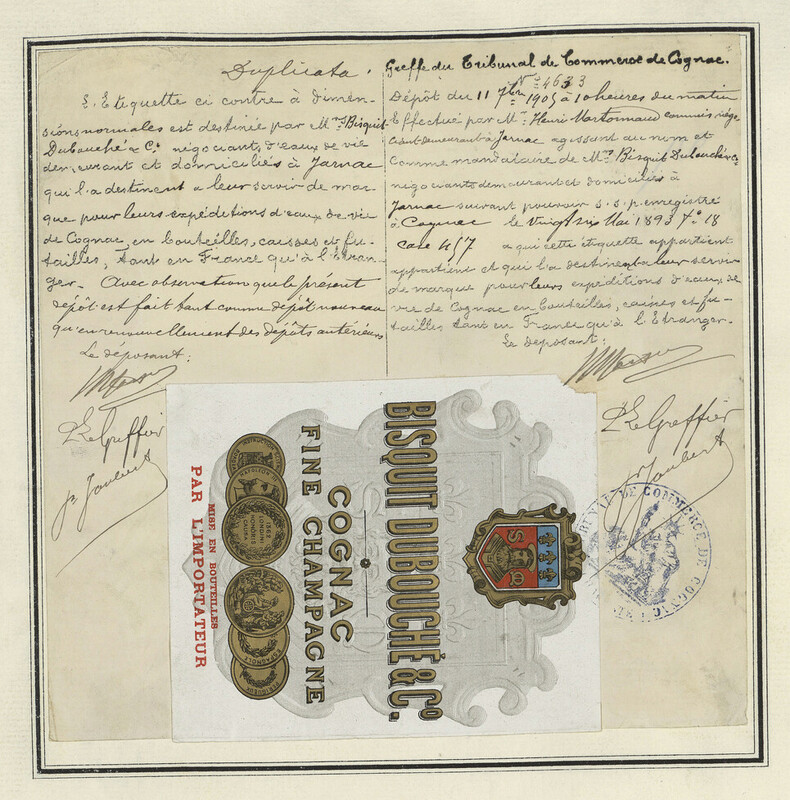 Duplicata.
L'Etiquette ci contre à dimen-
sions normales est destinée par Mrs Bisquit
Dubouché & Co négociants, d'eaux de vie
demeurant et domiciliés à Jarnac
qui l'a destinent a leur servir de mar
que pour leurs expéditions d'eaux de vie
de Cognac, en bouteilles, caisses et fu-
tailles, tant en France qu'à l'Etran-
ger. Avec observation que le présent
dépôt est fait tant comme dépôt nouveau
qu'en renouvellement des dépôts antérieurs
Le déposant:
P. Le Greffier
Joubert
Greffe du Tribunal de Commerce de Cognac.
No 4633
Dépôt du 11 7bre 1905 à 10 heures du matin
Effectué par Mr Henri Mortomaud commis négo
ciant demeurant à Jarnac agissant au nom et
comme mandataire de Mrs Bisquit Dubouché & Co
négociants demeurant et domiciliés à
Jarnac suivant pouvoir s.s.p. enregistré
à Cognac le vingt six Mai 1893 Fo 18
case 457 a qui cette étiquette appartient
appartient et qui l'a destinent a leur servir
de marque pour leurs expéditions d'eaux de
vie de Cognac en bouteilles, caisses et fu-
tailles tant en France qu'à l'Etranger.
Le déposant:
P. Le Greffier
Joubert
TRIBUNAL DE COMMERCE DE COGNAC
BISQUIT DUBOUCHÉ & Co.
COGNAC
FINE CHAMPAGNE
MISE EN BOUTEILLES
PAR L'IMPORTATEUR
NAPOLEON III
1862
LONDINI
HONORIS
CAUSA
ESPAGNOLE